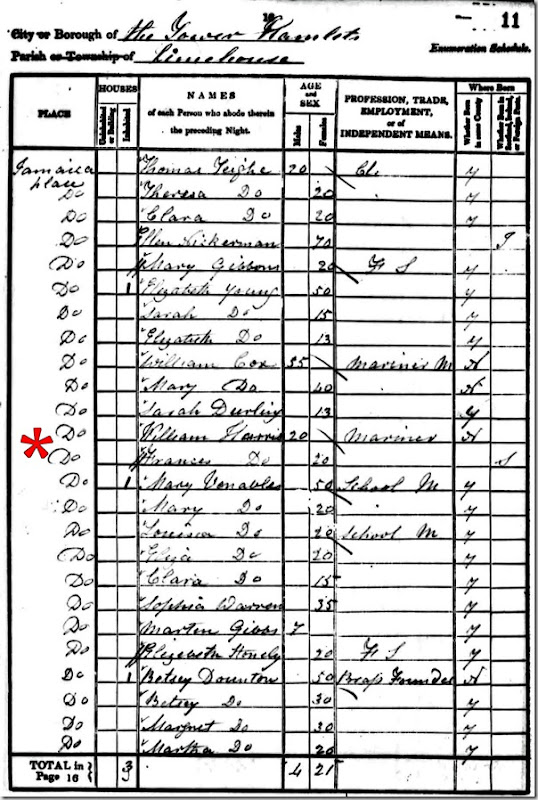 16
11
City or Borough of the Tower Hamlets
Parish or Township of Limehouse
Enumeration Schedule.
PLACE HOUSES NAMES of each Person who abode therein the preceding Night. AGE and SEX PROFESSION, TRADE, EMPLOYMENT, or of INDEPENDENT MEANS. Where Born
Uninhabited or Building Inhabited Males Females Whether Born in same County Whether Born in Scotland, Ireland, or Foreign Parts.
Jamaica place Thomas 20 y
Do Theresa Do 20 y
Do Clara Do 20 y
Do Ellen 70 I
Do Mary Gibbons 20 F S y
Do 1 Elizabeth Young 50 y
Do Sarah Do 15 y
Do Elizabeth Do 13 y
Do William Cox 35 Mariner M N
Do Mary Do 40 N
Do Sarah 13 y
* Do William Harris 20 Mariner N
Do Frances Do 20 S
Do 1 Mary Venables 50 School M y
Do Mary Do 20 y
Do Louisa Do 20 School M y
Do Eliza Do 20 y
Do Clara Do 15 y
Do Sophia Warren 35 y
Do Martin Gibbs 7 y
Do Elizabeth 20 F S y
Do 1 Betsey Dounton 50 Brass Founder N
Do Betsey Do 30 y
Do Margret Do 30 y
Do Martha Do 20 y
TOTAL in Page 16 3 4 21